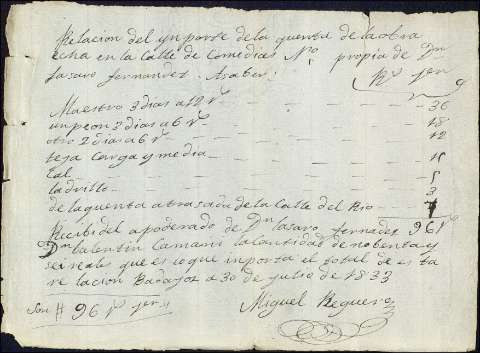 Relacion del ynporte de la quenta de la obra
echa en la Calle de Comedias Nº propia de Dn
Lasaro fernandez. Asaber
Maestro 3 dias a 12 rs 36
un peon 3 dias a 6 rs 18
otro 2 dias a 6 rs 12
teja Carga y media
Cal
ladrillo 3
de la quenta atrasada de la Calle del Rio
Recibi del apoderado de Dn Lasaro fernades 96 rs
Dn Balentin Camani la Cantidad de nobenta y
seis reales que es lo que inporta el total de esta
relacion Badajoz a 30 de julio de 1833
Son # 96 rs
Miguel Reguero